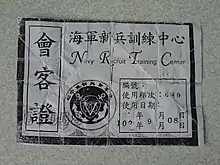 會客證
海軍新兵訓練中心
Navy Recruit Training Center
編號
使用梯次：689
使用日期：
年9月08日
月 日